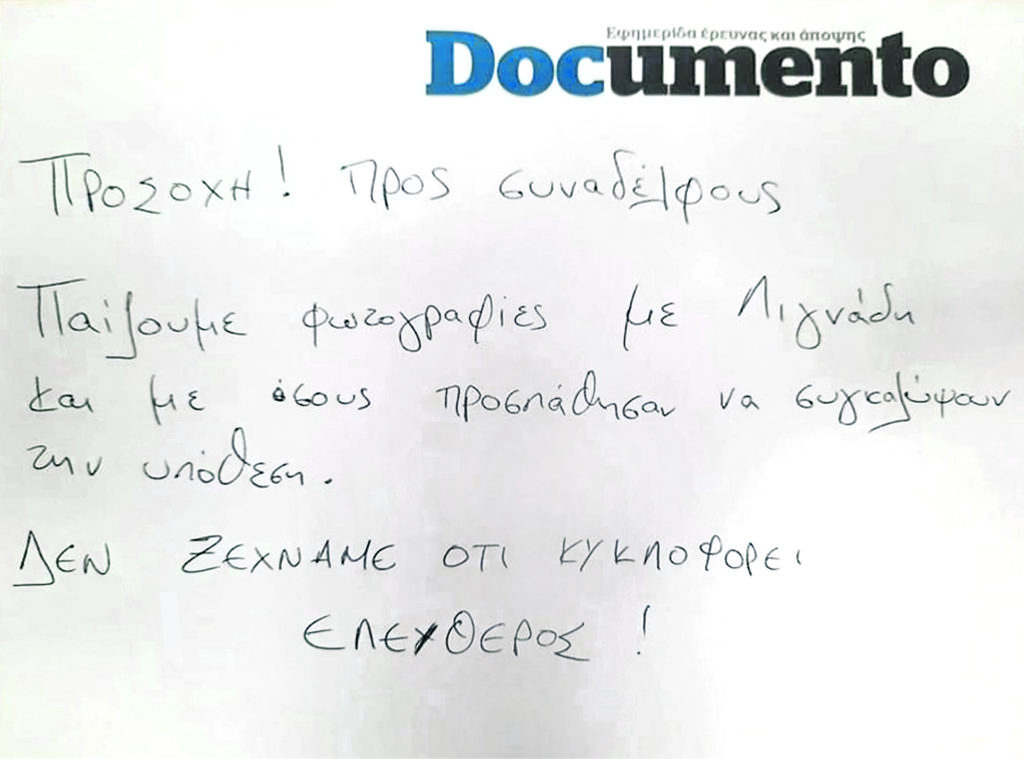 Εφημερίδα έρευνας και άποψης
Documento
ΠΡΟΣΟΧΗ! Προς συναδέλφους
Παίζουμε φωτογραφίες με Λιγνάδη
και με όσους προσπάθησαν να συγκαλύψουν
την υπόθεση.
ΔΕΝ ΞΕΧΝΑΜΕ ΟΤΙ ΚΥΚΛΟΦΟΡΕΙ
ΕΛΕΥΘΕΡΟΣ!